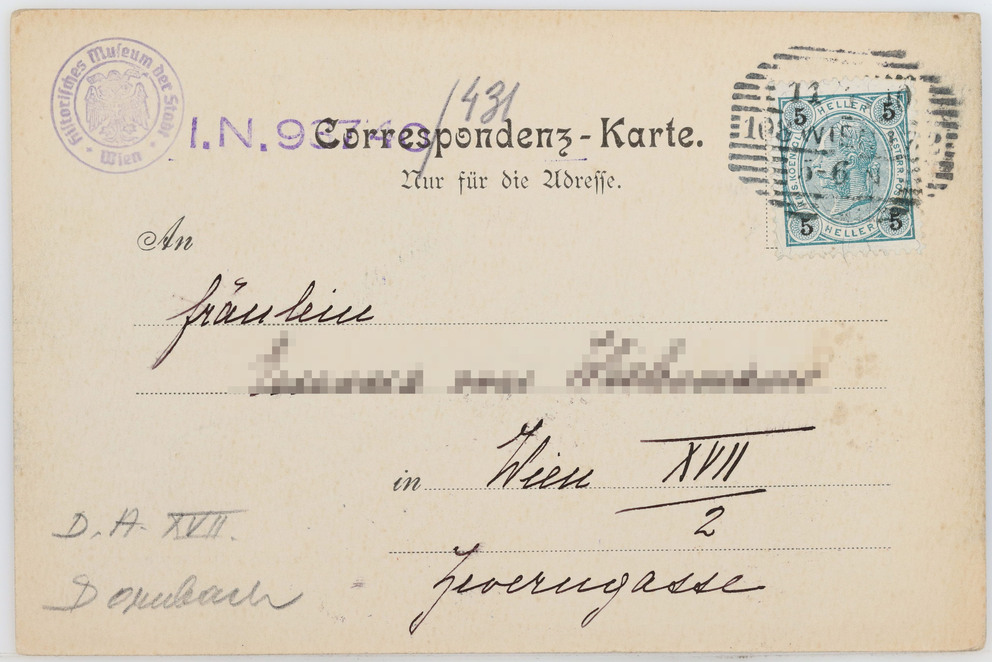 Historisches Museum der Stadt Wien
/431
I.N. 93740
Correspondenz-Karte.
Nur für die Adresse.
5 HELLER 5
WIEN
5-6 N
5 HELLER 5
An
Fräulein
in Wien XVII
2
D. A. XVII.
Dornbach